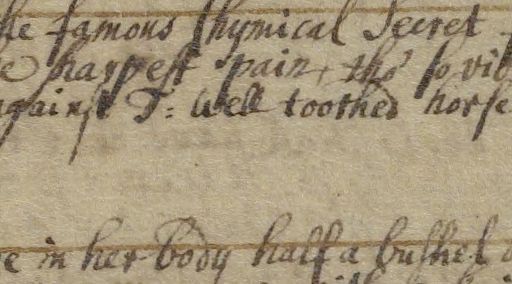 he famous Chymical Secret
e harpest pain, tho' so vio
against T: Well toothed horse
e in her Body half a bushel